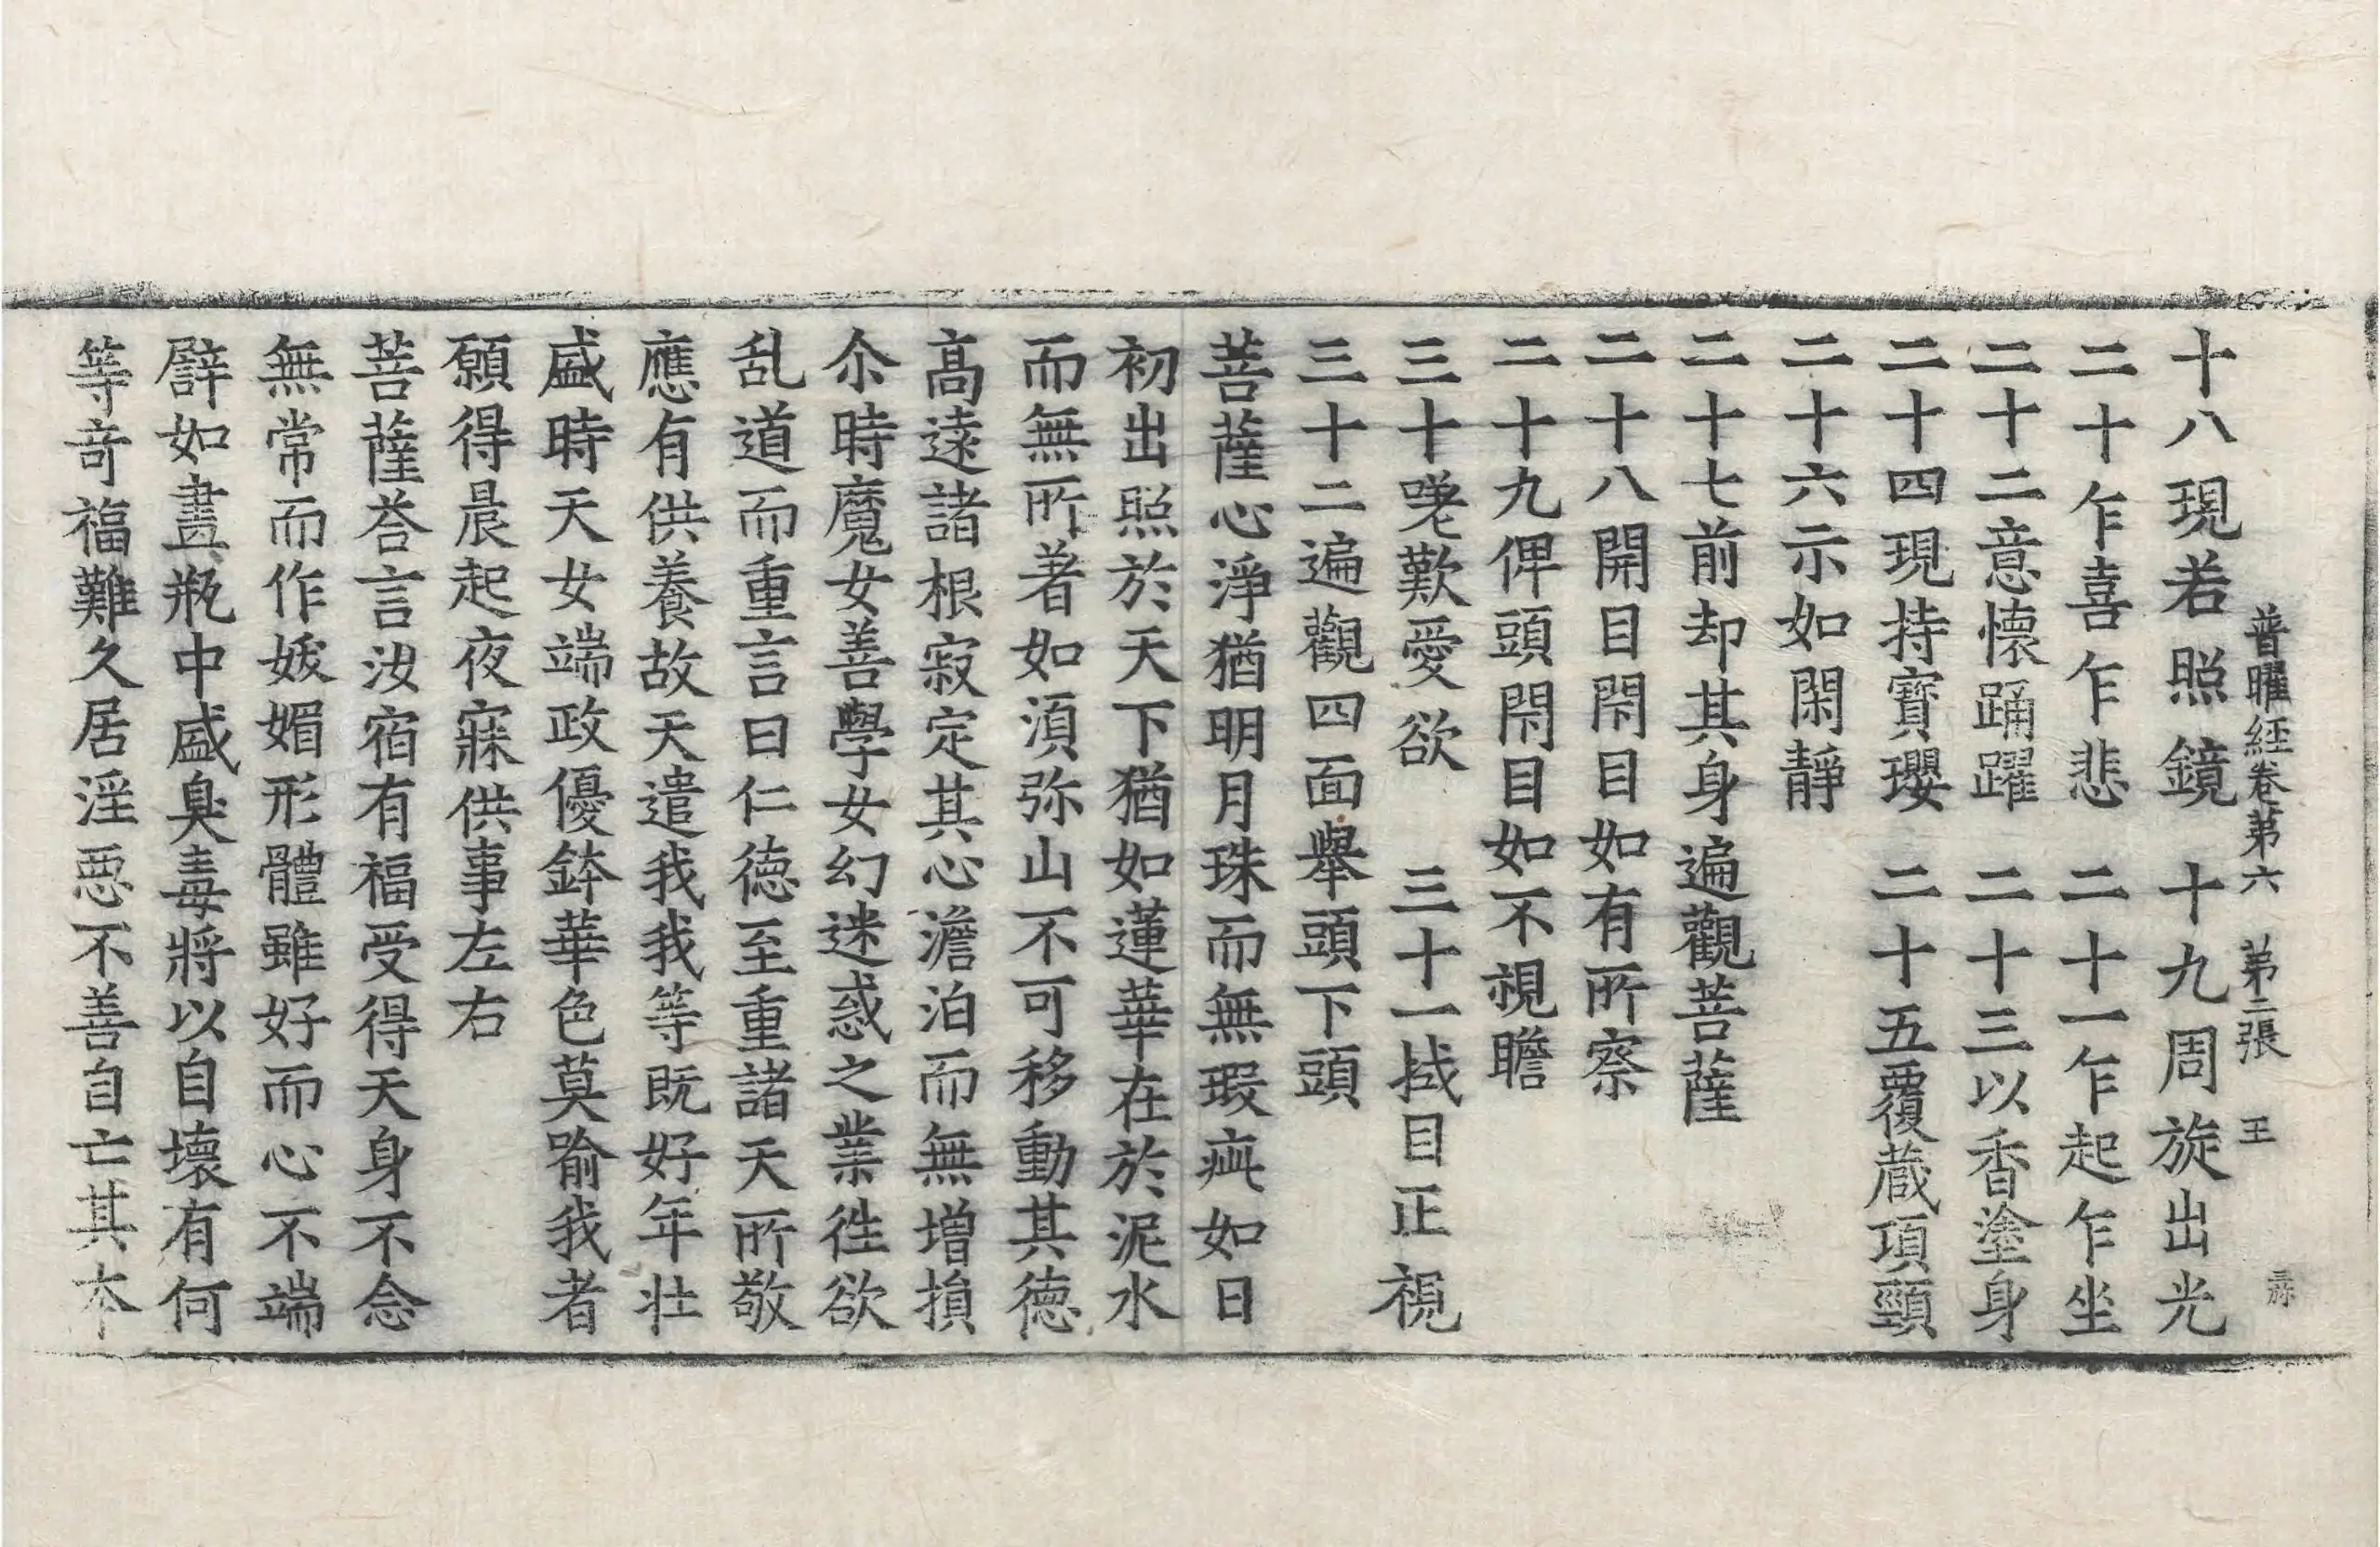 普曜經卷第六 第二張 王
十八現若照鏡 十九周旋出光
二十乍喜乍悲 二十一乍起乍坐
二十二意懷踊躍 二十三以香塗身
二十四現持寶瓔 二十五覆蔵項頸
二十六示如閑靜
二十七前却其身遍觀菩薩
二十八開目閇目如有所察
二十九俾頭閇目如不視瞻
三十嘆歎愛欲 三十一拭目正視
三十二遍觀四面舉頭下頭
菩薩心淨猶明月珠而無瑕疵如日
初出照於天下猶如蓮華在於泥水
而無所著如湏弥山不可移動其德
高遠諸根寂定其心澹泊而無增損
尒時魔女善學女幻迷惑之業往欲
乱道而重言曰仁德至重諸天所敬
應有供養故天遣我我等既好年壯
盛時天女端政優鉢華色莫喻我者
願得晨起夜寐供事左右
菩薩荅言汝宿有福受得天身不念
無常而作妖媚形體雖好而心不端
譬如畫瓶中盛臭毒將以自壞有何
等竒福難久居淫惡不善自亡其本